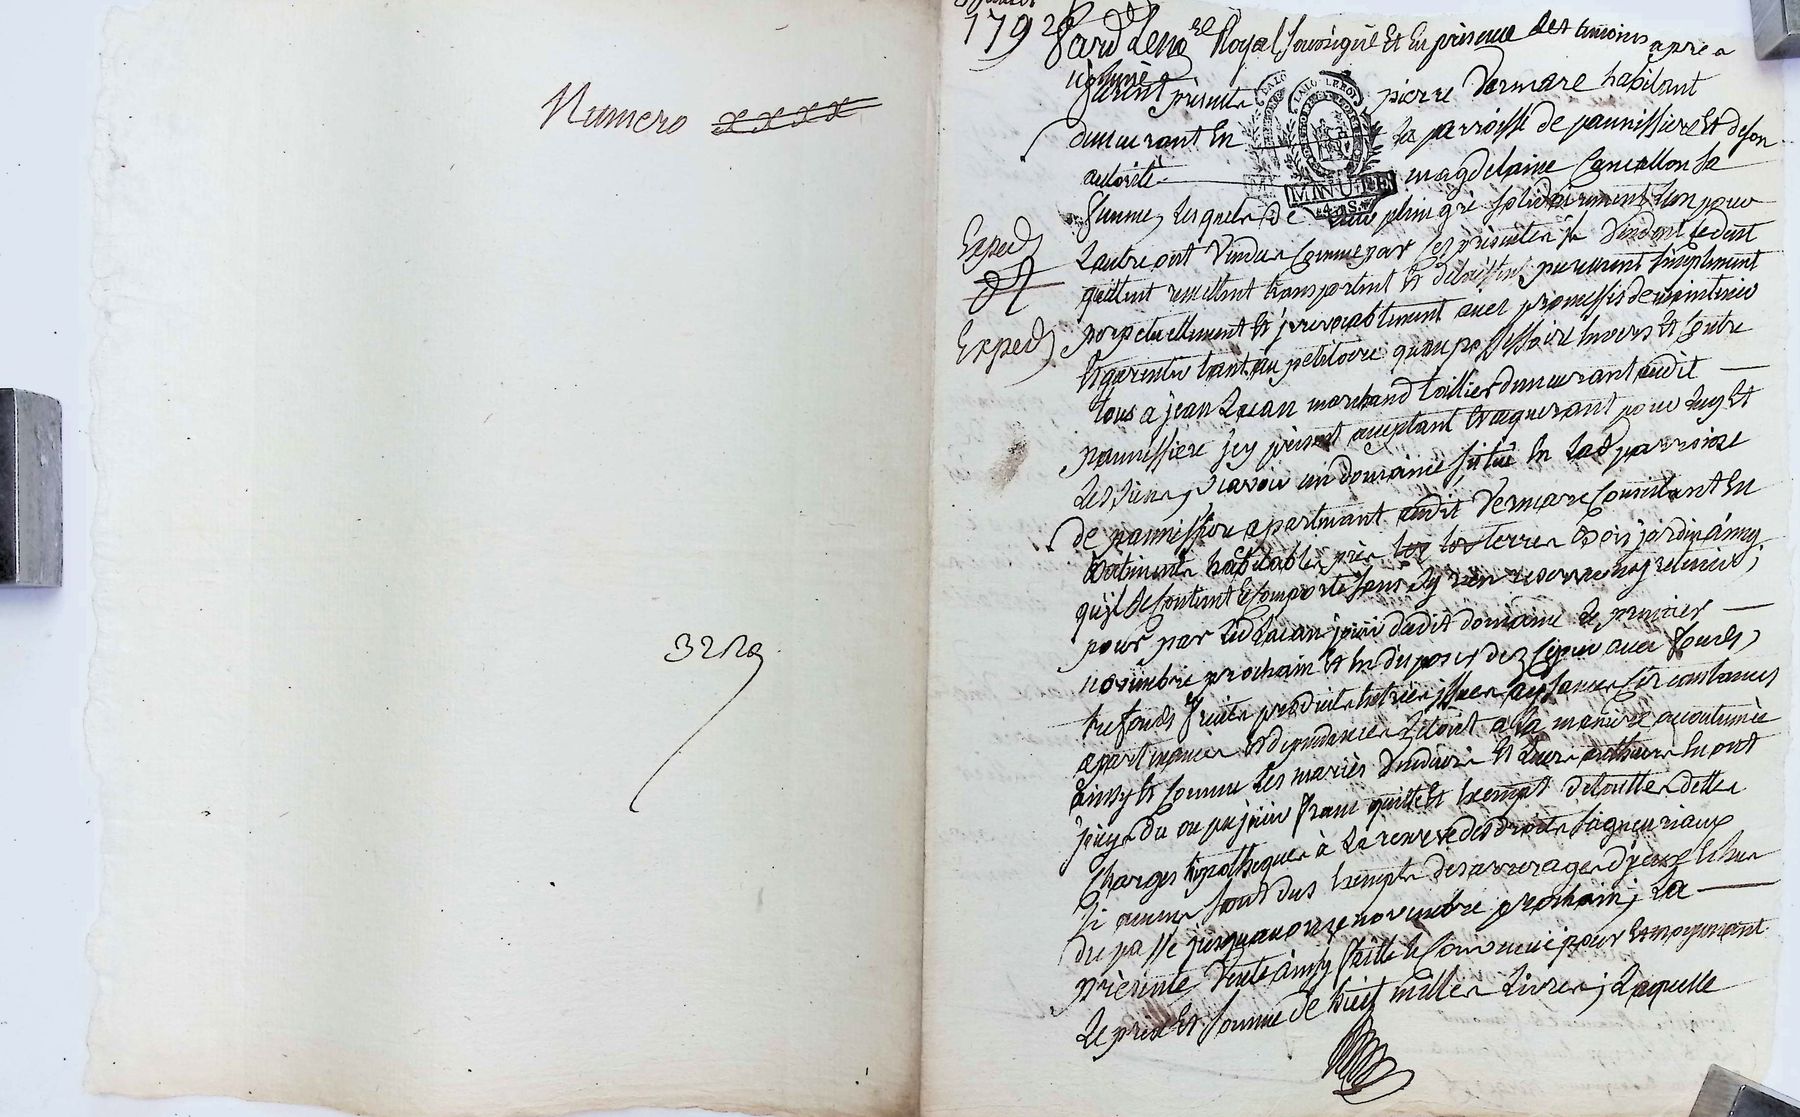 Numero xxxx
1792
pard Le no.re Royal soussigné Et En présence des temoins apres
nommés
furent présents pierre Dermare habitant
demeurant En La parroisse de pannissiere Et de son
autorité magdelaine Cancallon sa
MINUTE
4. S.
femme, Lesquels de Leur plein gré solidairement L'un pour
Exped
L'autre ont Vendus Comme par Ces présentes ils Vendent cedent
quittent remettent transportent Et delaissent purement simplement
perpetuellement Et jrrevocablement avec promesses de maintenir
Exped
Et garentir tant au petitoire qu'au possessoire Envers Et Contre
tous a jean Lacan marchand toillier demeurant audit
pannissiere jcy présent acceptant Et aquerant pour Luy Et
Les siens, scavoir un domaine situé En Lad parroisse
de pannissiere apartenant audit Dermare Consistant En
Batiments habitables près terres Bois jardin ainsy
qu'il se Contient Et Comporte sans En rien reserver ny retenir;
pour par Led Lacan jouir dudit domaine Le premier
novembre prochain Et En disposer dez Cejour avec fonds,
tresfonds fruits produits Entrées jssues aysances Circonstances
apartenances Et dependances Le tout a la maniere accoutumée
Ainsy Et Comme Les mariés Vendeurs Et Leurs autheurs En ont
jouy du ou pu jouir franc quitte Et Exempt de touttes dettes
Charges hypotheques à La reserve des droits seigneuriaux
si aucuns sont dus Exempts des arrerages d'jceux Echus
du passé jusqu'au onze novembre prochain; La
présente Vente ainsy faitte Et Convenue pour Et moyennant
Le prix Et somme de huit milles Livres; Laquelle